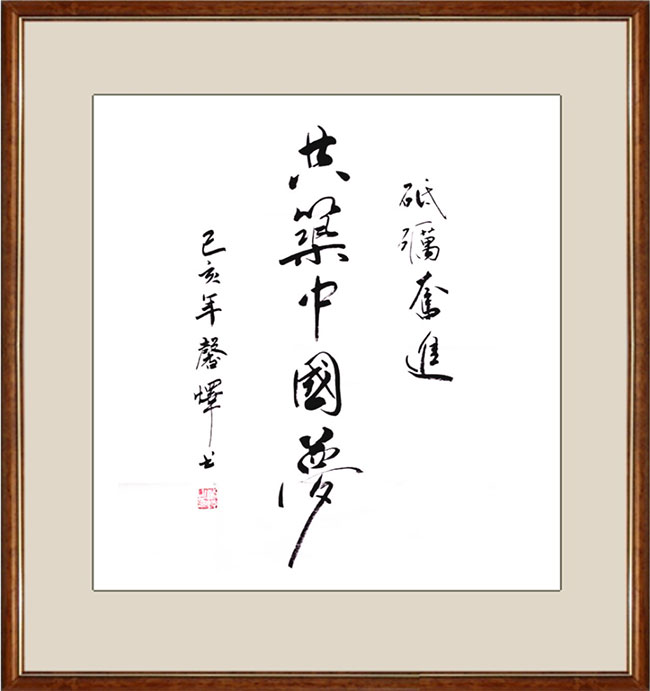 砥礪奮進
共築中國夢
己亥年馨燁书